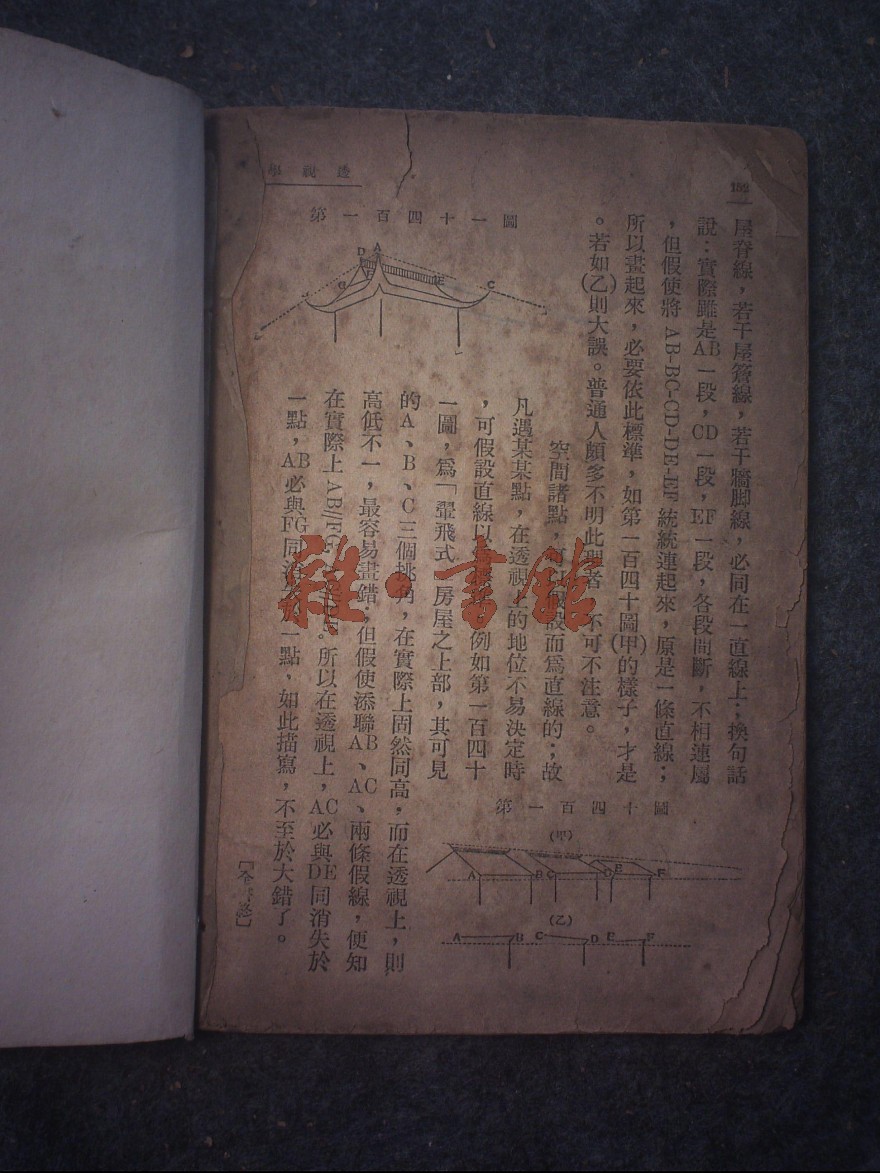 152
透視學
屋脊線，若干屋簷線，若干牆脚線，必同在一直線上；換句話
說：實際雖是AB一段，CD一段，EF一段，各段間斷，不相連屬
，但假使將AB-BC-CD-DE-EF統統連起來，原是一條直線；
所以畫起來，必要依此標準，如第一百四十圖(甲)的樣子，才是
。若如(乙)則大誤。普通人頗多不明此理者，不可不注意。
空間諸點，可假設而爲直線的；故
凡遇某某點，在透視上的地位不易決定時
，可假設直線以 例如第一百四十
一圖，爲「翬飛式」房屋之上部，其可見
的A、B、C三個挑角，在實際上固然同高，而在透視上，則
高低不一，最容易畫錯；但假使添聯AB、AC、兩條假線，便知
在實際上AB//FG 。所以在透視上，AC必與DE同消失於
一點，AB必與FG同消 一點，如此描寫，不至於大錯了。
[全書完]
第一百四十一圖
D A F G E C
第一百四十圖
(甲)
A B C D E F
(乙)
A B C D E F
雜·書館